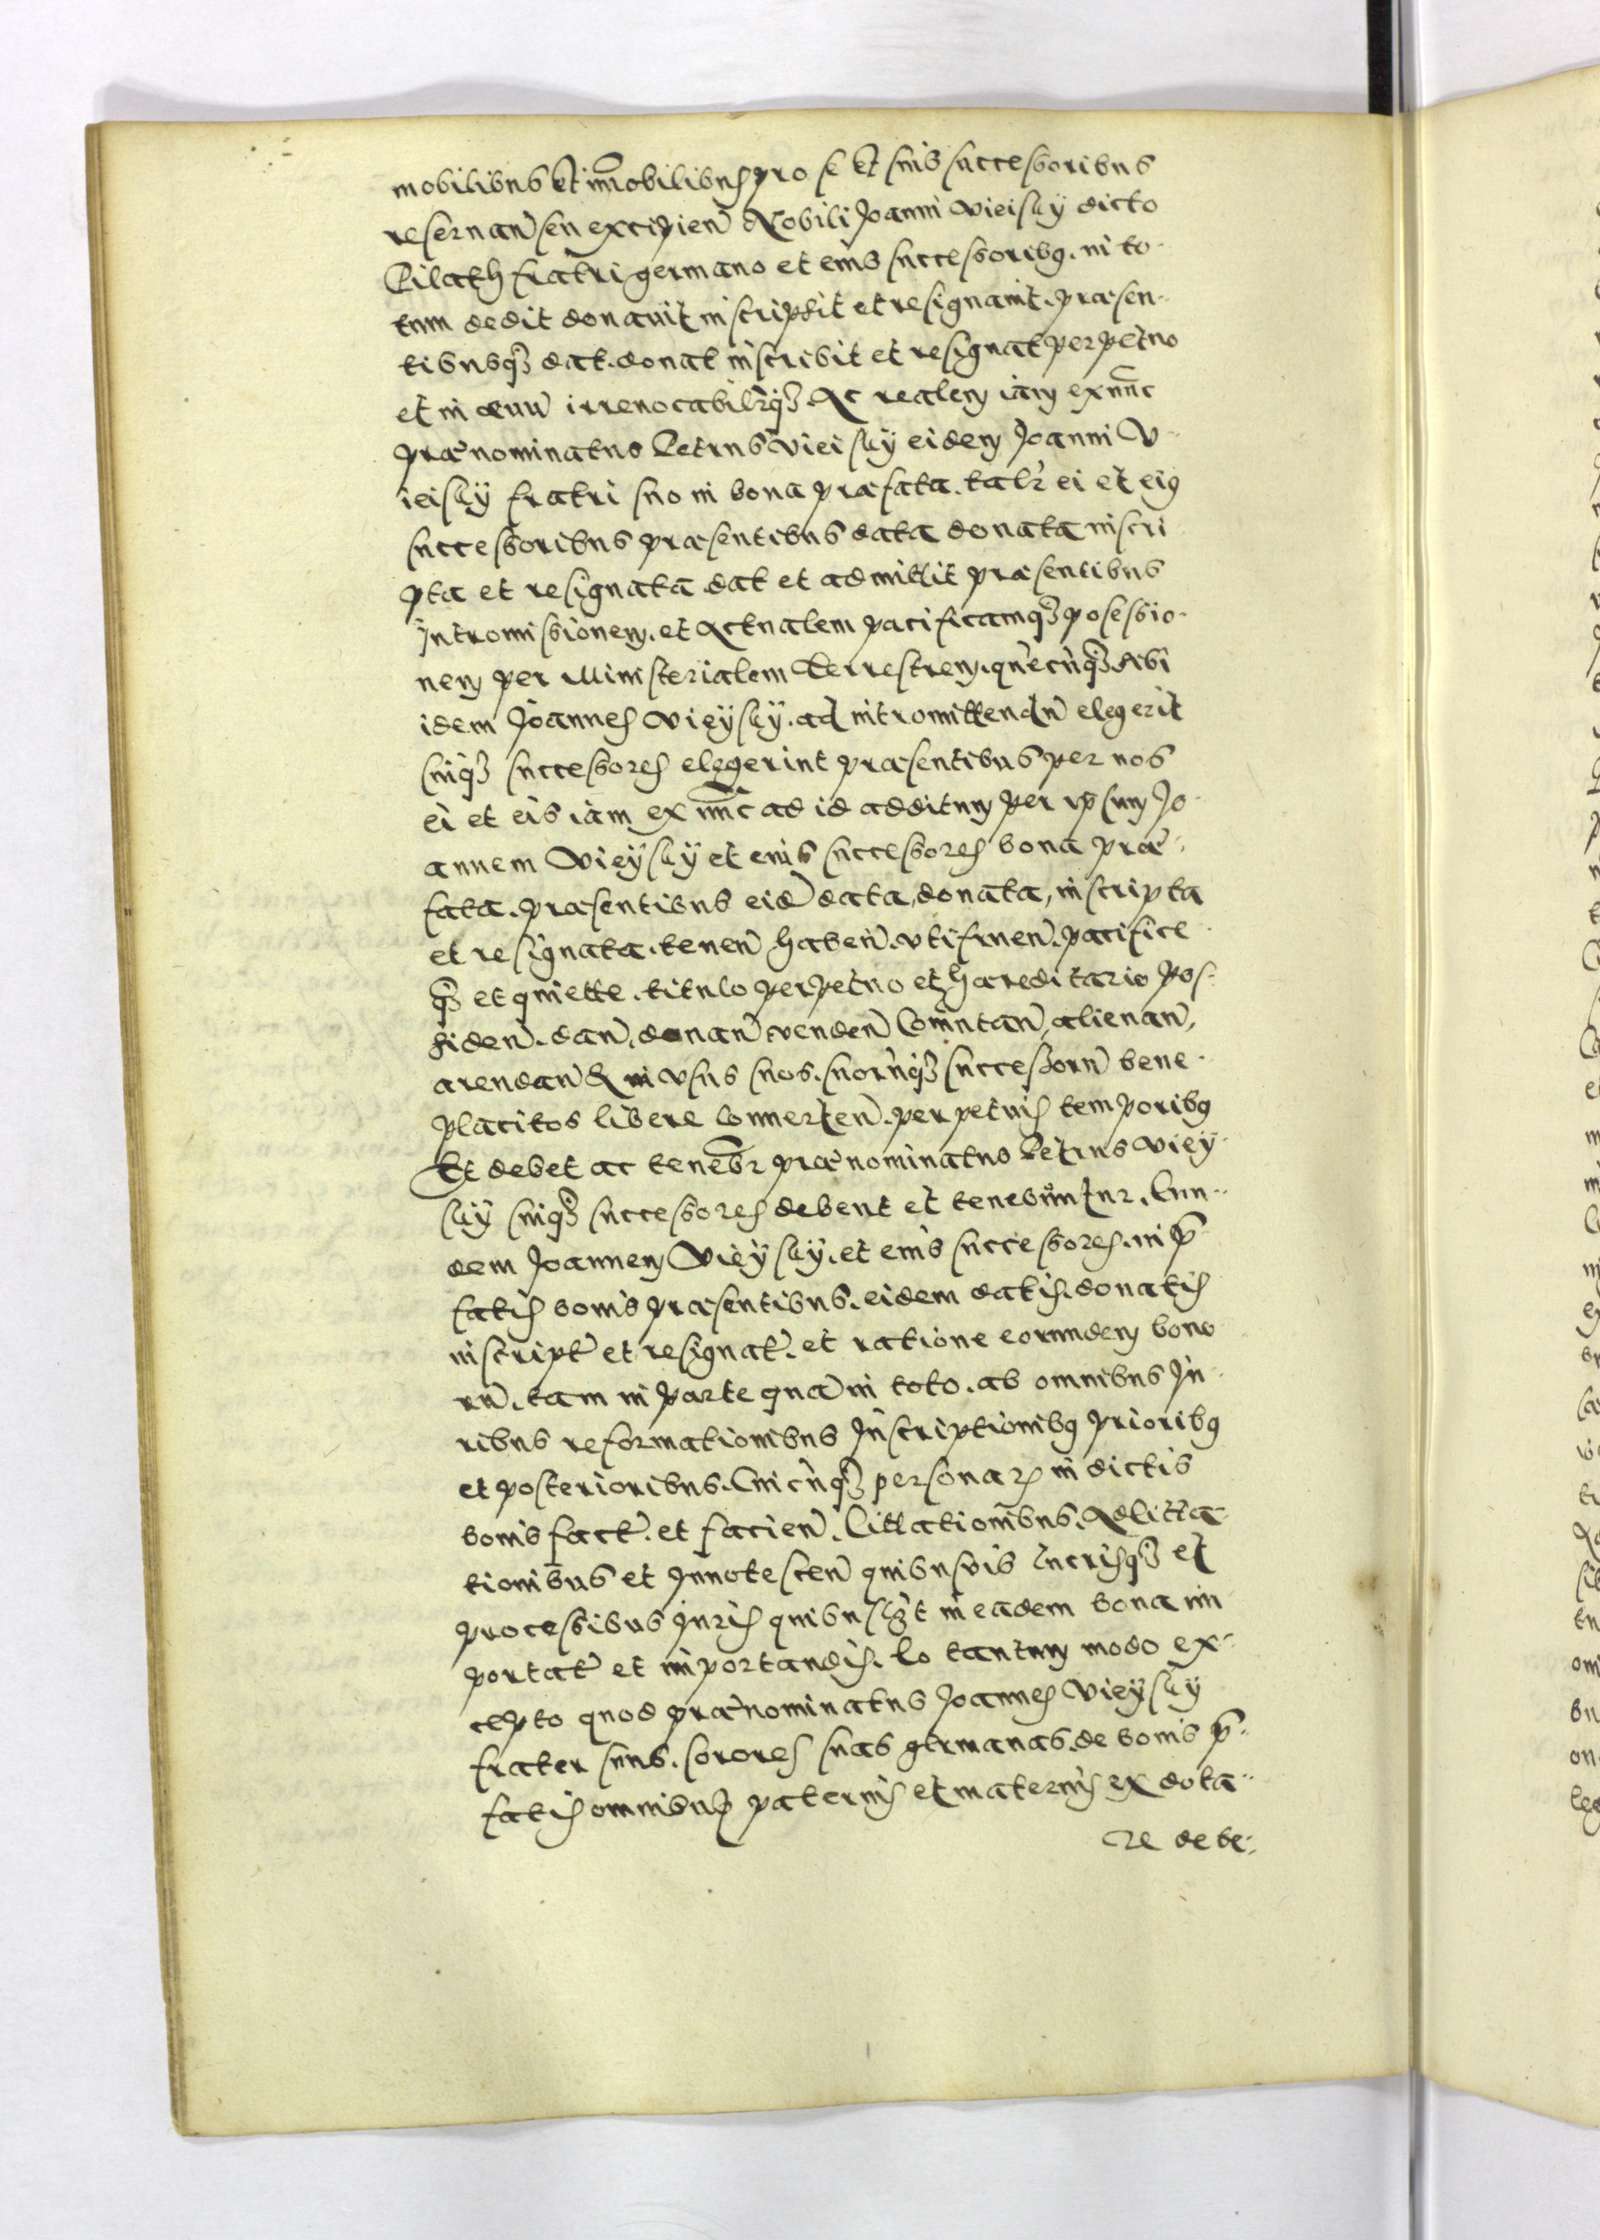 mobilibus et im̄obilibus pro se et suis successoribus
reseruan̄ seu excipien̄ Nobili Joanni Vieisky dicto
Pilath fratri germano et eius successoribq. in to-
tum dedit donauit inscripsit et resignauit. præsen-
tibusq3 dat. donat inscribit et resignat perpetuo
et in æuū irreuocabilr̄q3. Ac realem iam ex nūc
prænominatus Petrus Vieisky eidem Joanni V-
ieisky fratri suo in bona præfata. talr̄ ei et eiq
successoribus præsentibus data donata inscri
pta et resignata dat et admittit præsentibus
Intromissionem. et Actualem pacificamq3 posessio-
nem per Ministerialem Terrestrem. quēcūq3 sibi
idem Joannes Vieysky. ad intromittendū elegerit
suiq3 successores elegerint præsentibus per nos
ei et eis iam ex nūc ad id additum per ipsum Jo-
annem Vieysky et eius successores bona præ-
fata. præsentibus eid̄ data, donata, inscripta
et resignata. tenen̄ haben̄. utifruen̄. pacifice
q3 et quiette. titulo perpetuo et hæreditario pos-
siden̄. dan̄. donan̄ venden̄ Com̄utan̄, alienan̄,
arendan̄ & in usus suos. suorūq3 successorū bene-
placitos libere conuerten̄. perpetuis temporibq
Et debet ac tenebr̄ prænominatus Petrus Viey-
sky suiq3 successores debent et tenebuntur. Eun-
dem Joannem Vieysky. et eius successores. in p̄-
fatis bonis præsentibus. eidem datis. donatis
inscript̄ et resignat̄. et ratione eorundem bono
rū. tam in parte quā in toto. ab omnibus Ju-
ribus reformationibus Inscriptionibq prioribq
et posterioribus. Cuicūq3 personarȝ in dictis
bonis fact̄. et facien̄. Cittationibus. Adcitta-
tionibus et Innotescen̄ quibusvis lucrisq3 et
processibus Juris quibuslꝫt in eadem bona im
portat̄ et importandis. Eo tantum modo ex-
cepto quod prænominatus Joannes Vieysky
frater suus. sorores suas germanas. de bonis p̄-
fatis omnibus paternis et maternis ex dota-
re debe-